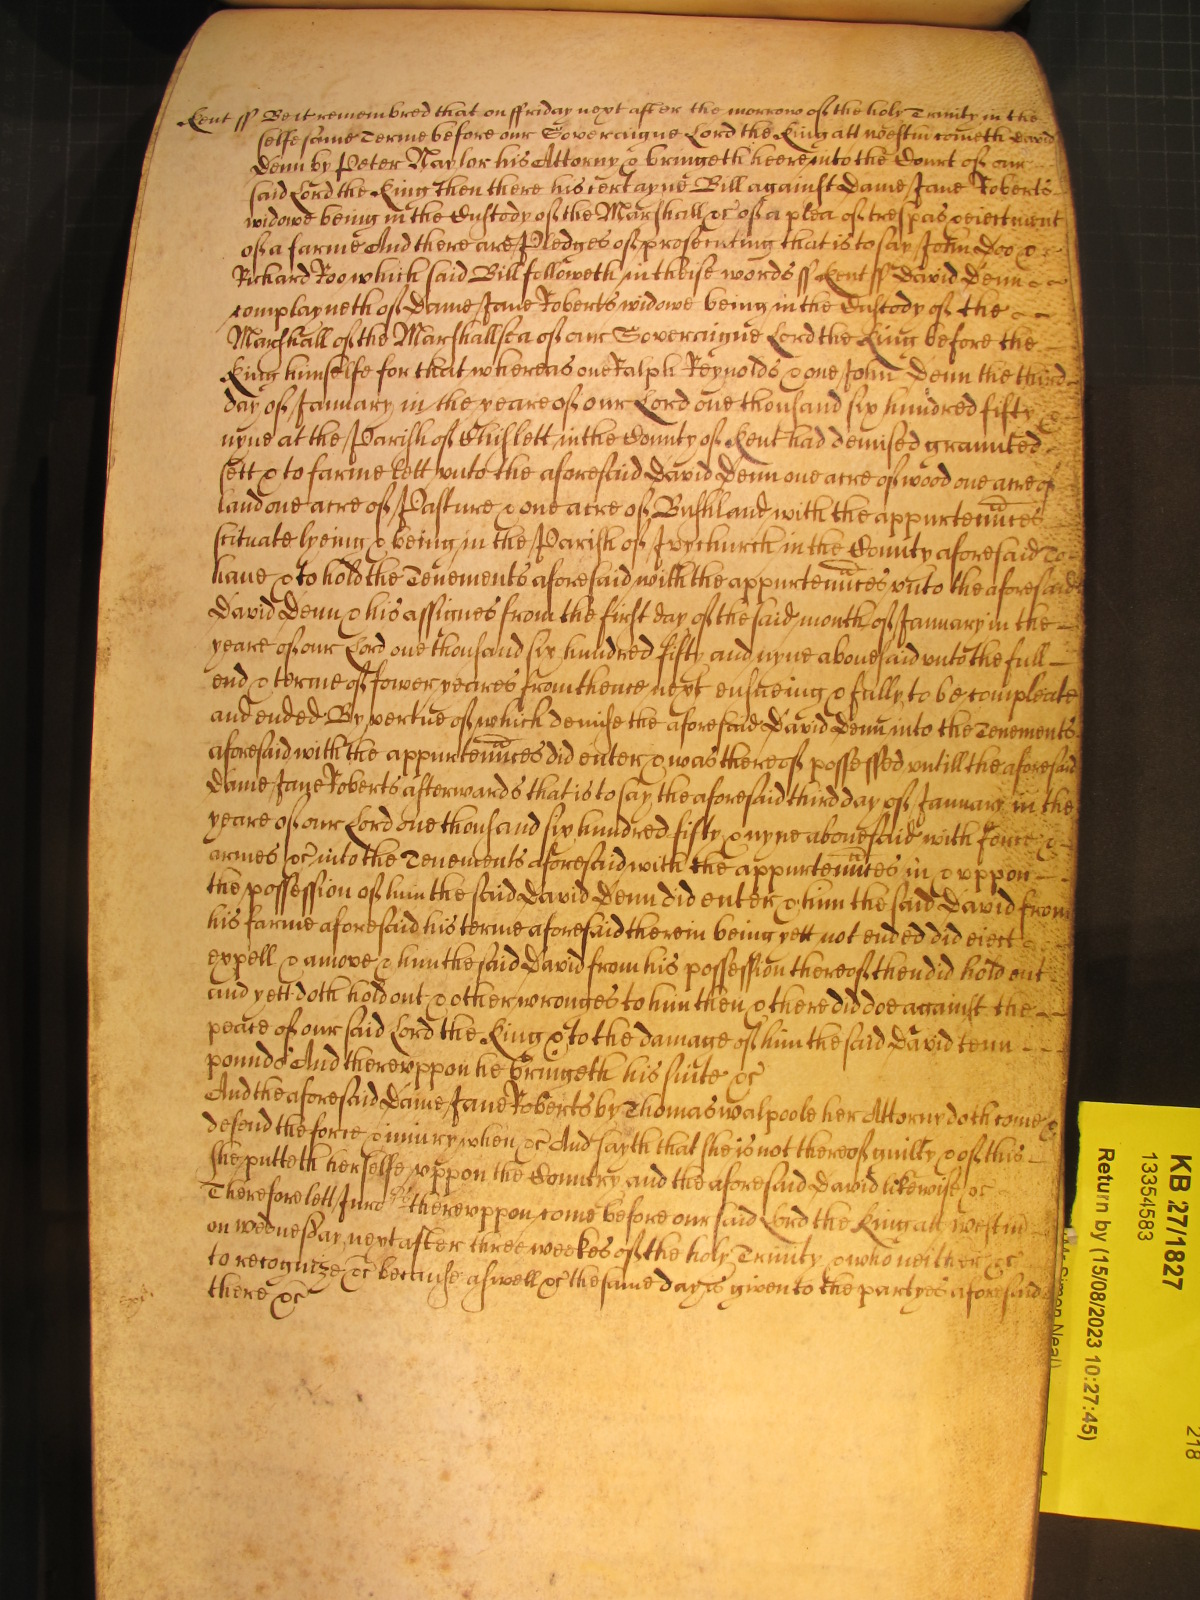 Kent ss Be it remembred that on ffriday next after the morrow of the holy Trinity in the
selfe same Terme before our Soveraigne Lord the King att Westm cometh David
Denn by Peter Naylor his Attorny & bringeth heere into the Court of our
said Lord the King then there his certayne Bill against Dame Jane Roberts
widowe being in the Custody of the Marshall &c of a plea of trespas & eiectment
of a farme And there are Pledges of prosecuting that is to say John Doo &
Richard Roo which said Bill followeth in theise words ss Kent ss David Denn
complayneth of Dame Jane Roberts widowe being in the Custody of the
Marshall of the Marshallsea of our Soveraigne Lord the King before the
King himselfe for that whereas one Ralph Reynolds & one John Denn the third
day of January in the yeare of our Lord one thousand six hundred fifty &
nyne at the Parish of Chislett in the County of Kent had demised graunted
sett & to farme lett vnto the aforesaid David Denn one acre of wood one acre of
land one acre of Pasture & one acre of Bushland with the appurtennces
scituate lyeing & being in the Parish of Ivychurch in the County aforesaid To
haue & to hold the Tenements aforesaid with the appurtennces vnto the aforesaid
David Denn & his assignes from the first day of the said month of January in the
yeare of our Lord one thousand six hundred fifty and nyne abouesaid vnto the full
end & terme of fower yeares from thence next ensueing & fully to be compleate
and ended By vertue of which demise the aforesaid David Denn into the Tenements
aforesaid with the appurtennces did enter & was thereof possessed vntill the aforesaid
Dame Jane Roberts afterwards that is to say the aforesaid third day of January in the
yeare of our Lord one thousand six hundred fifty & nyne abouesaid with force &
armes &c into the Tenements aforesaid with the appurtennces in & vppon
the possession of him the said David Denn did enter & him the said David from
his farme aforesaid his terme aforesaid therein being yett not ended did eiect
expell & amove & him the said David from his possession thereof then did hold out
and yett doth hold out & other wronges to him then & there did doe against the
peace of our said Lord the King & to the damage of him the said David tenn
pounds And therevppon he bringeth his suite &c
And the aforesaid Dame Jane Roberts by Thomas Walpoole her Attorny doth come &
defend the force & iniury when &c And sayth that she is not thereof guilty & of this
she putteth her selfe vppon the Country and the aforesaid David likewise &c
Therefore lett Jurd therevppon come before our said Lord the King att Westm
on wednesday next after three weekes of the holy Trinity & who neither &c
to recognize &c because aswell &c the same day is given to the partyes aforesaid
there &c
KB 27/1827
13354583
Return by (15/08/2023 10:27:45)
218